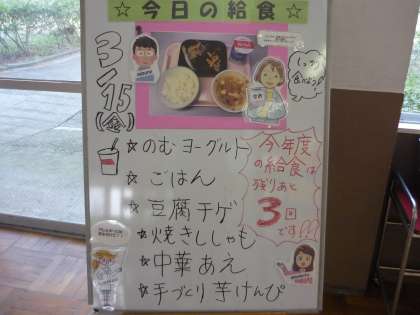 ☆今日の給食☆
3/15
(金)
しっかり
食べようね
☆のむヨーグルト
☆ごはん
☆豆腐チゲ
☆焼きししゃも
☆中華あえ
☆手づくり芋けんぴ
今年度
の給食は
残りあと
3回
です!!!